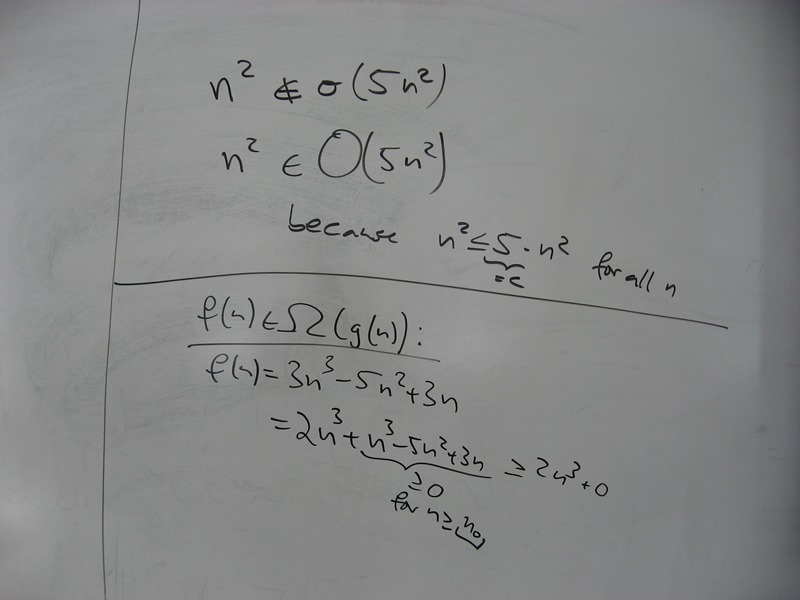 n² ∉ o(5n²)
n² ∈ O(5n²)
because n² ≤ 5 · n² for all n
= c
f(n) ∈ Ω(g(n)):
f(n) = 3n³ - 5n² + 3n
= 2n³ + n³ - 5n² + 3n ≥ 2n³ + 0
≥ 0
for n ≥ n₀